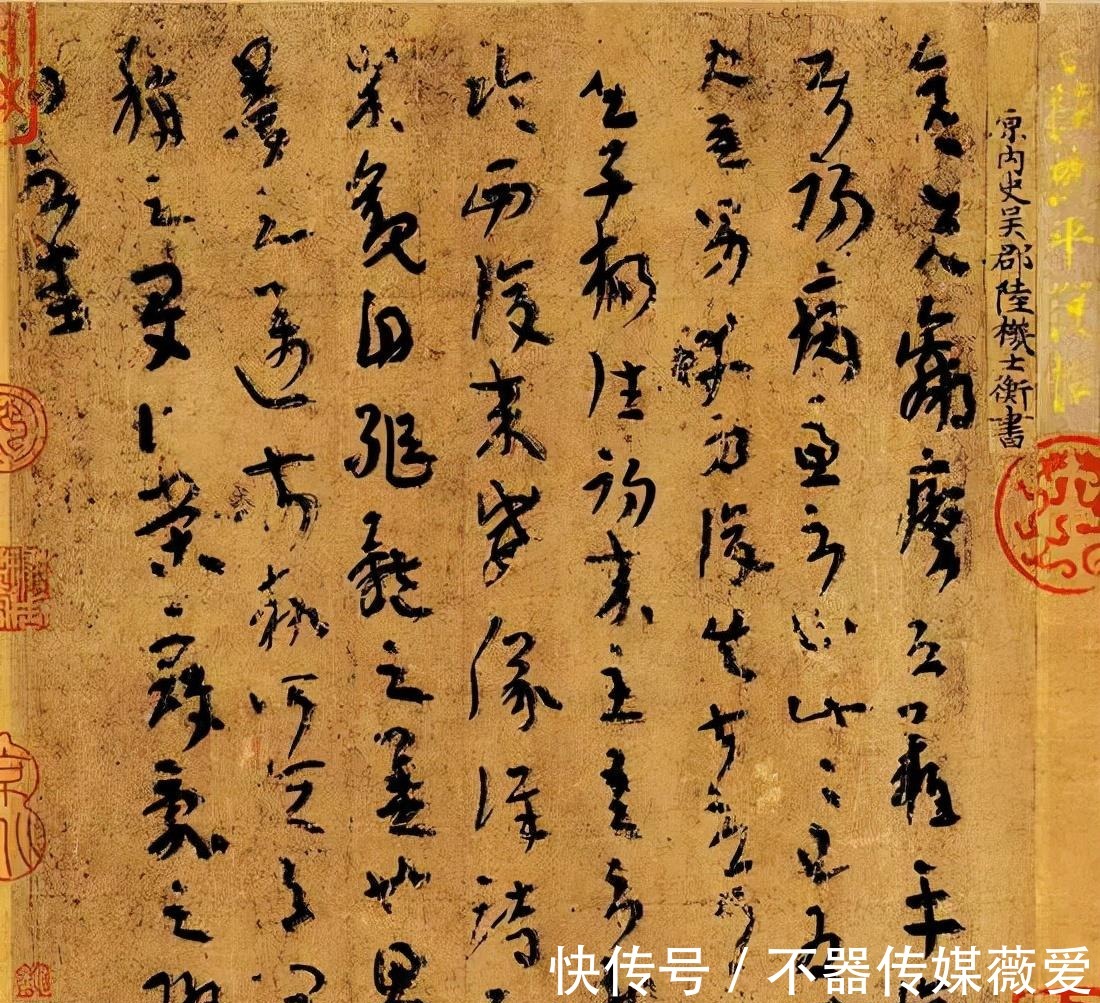 陸機平復帖
原內史吳郡陸機士衡書
彦先羸瘵恐難平
初病慮不止此此已為
使唯男幸為復失前憂耳
子楊往初來主吾
臨西復來威儀詳跱
觀自軀體之美也思
量之邁前執所恒有
稱之夏伯榮寇亂之際
問不悉
快传号 / 不器传媒薇爱